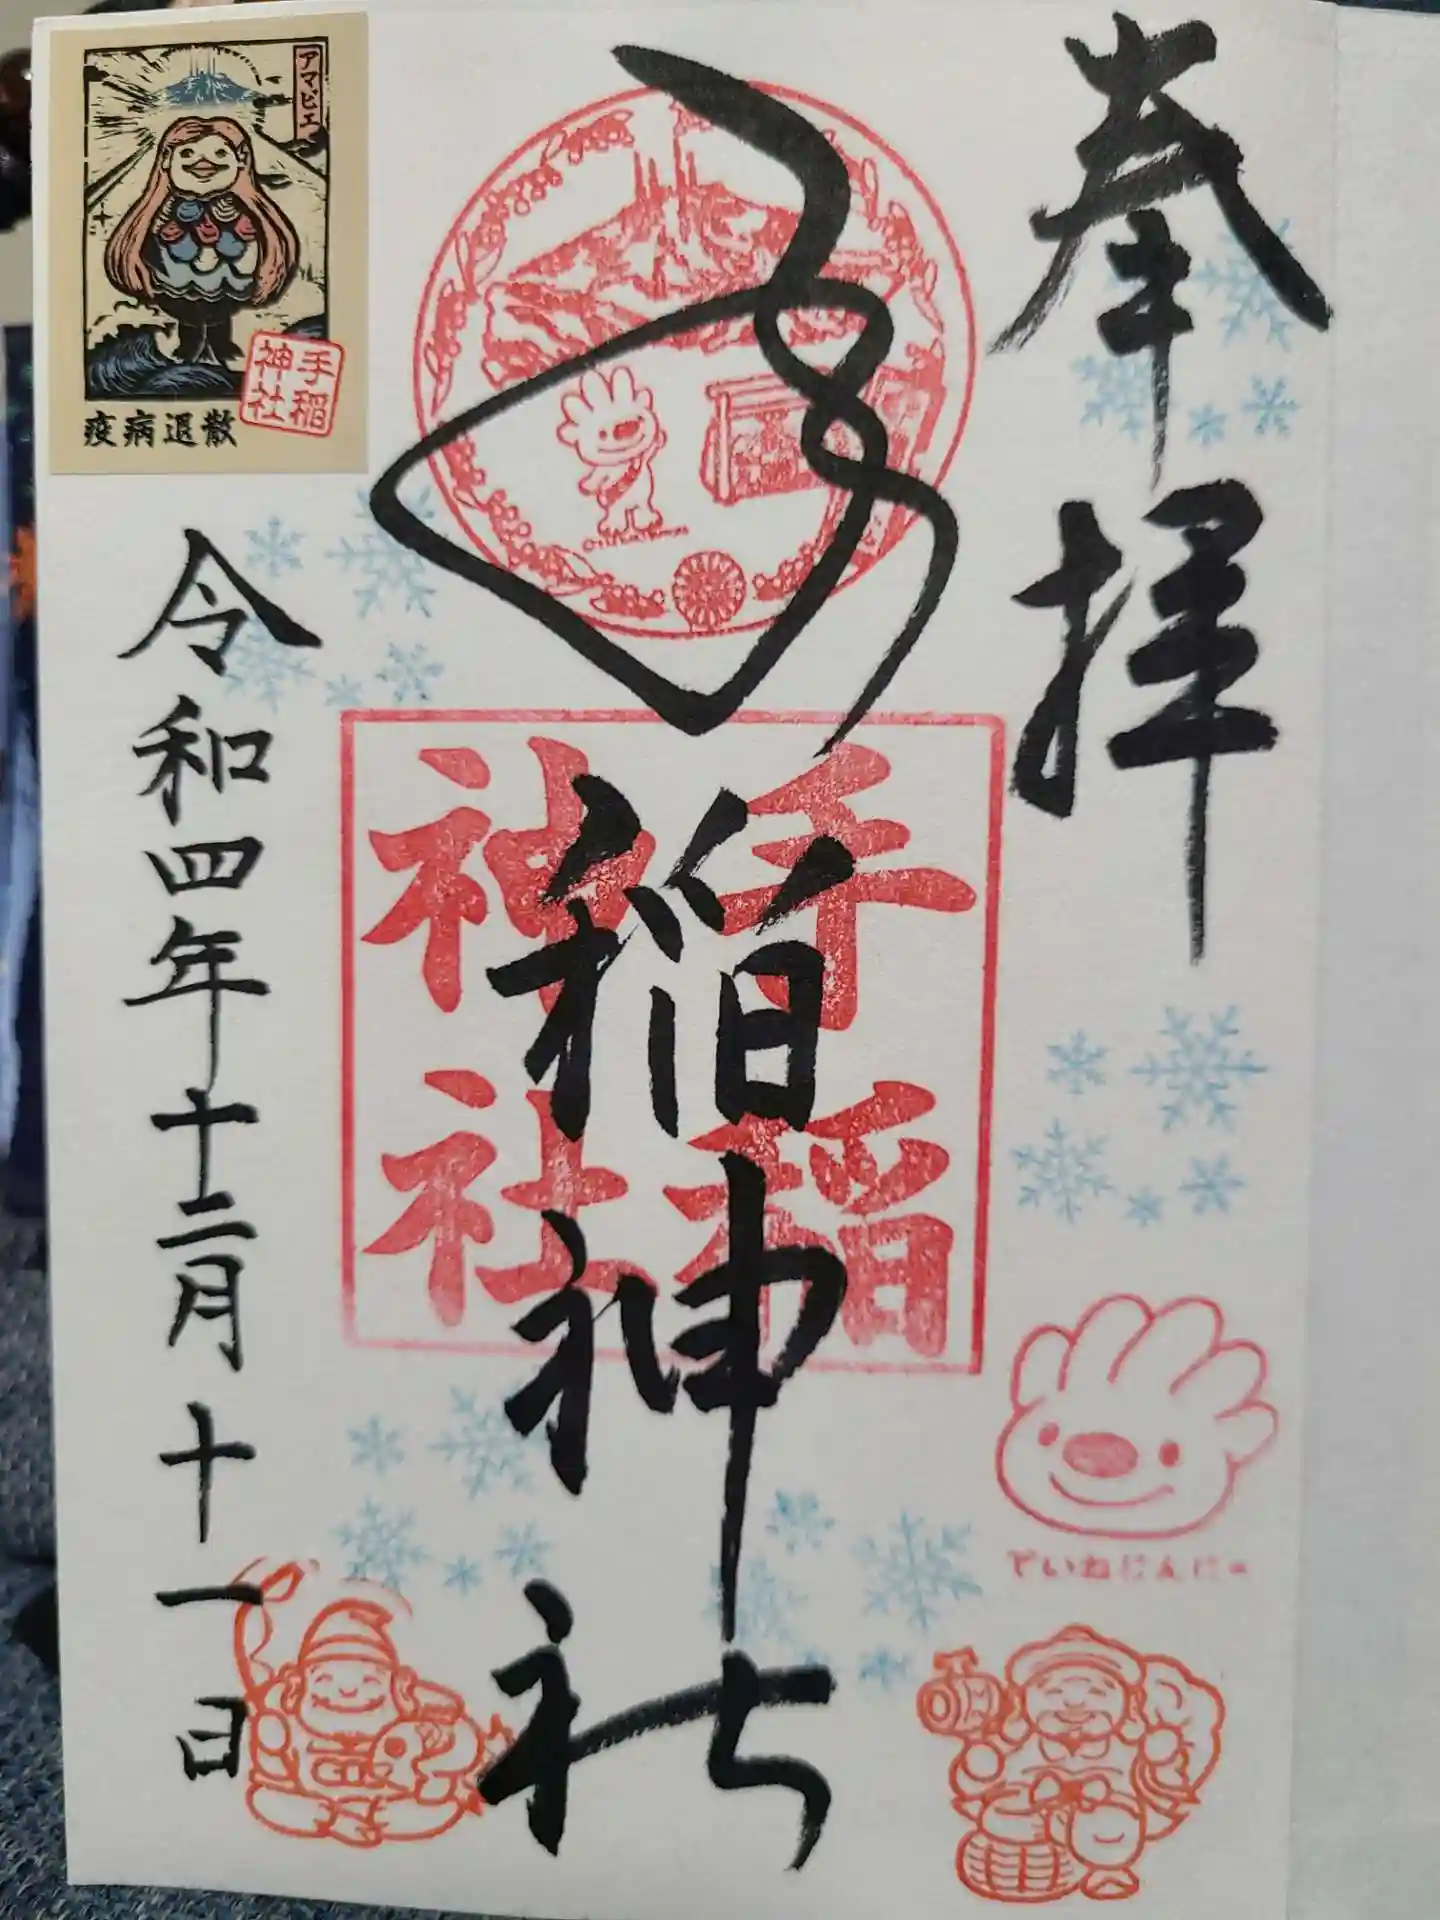 奉拝
手稲神社
手稲
神社
令和四年十二月十一日
アマビエ
手稲
神社
疫病退散
ていねにんにゃ